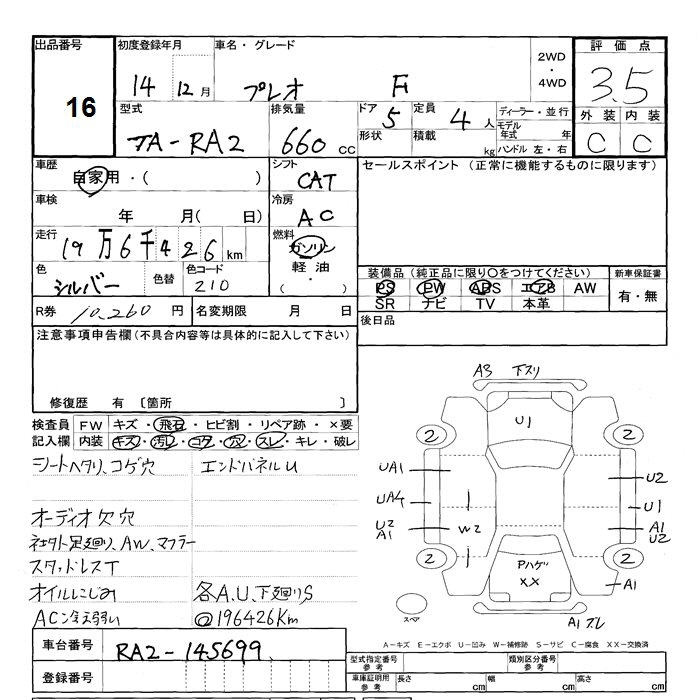 出品番号 初度登録年月 車名・グレード 2WD・4WD 評価点
16 14 12月 プレオ F 3.5
型式 排気量 ドア 5 定員 4人 ディーラー・並行 外装 内装
TA-RA2 660cc 形状 積載 kg モデル年式 年 C C
ハンドル 左・右
車歴 自家用・( ) シフト CAT セールスポイント (正常に機能するものに限ります)
車検 年 月( 日) 冷房 AC
走行 19万6千426km 燃料 ガソリン 軽油・( )
色 シルバー 色替 色コード 210
装備品(純正品に限り○をつけてください) 新車保証書
PS PW ABS エアB AW 有・無
SR ナビ TV 本革
R券 10,260円 名変期限 月 日 後日品
注意事項申告欄(不具合内容等は具体的に記入して下さい)
修復歴 有 〔箇所 〕
検査員 FW キズ・飛石・ヒビ割・リペア跡・×要
記入欄 内装 キズ・汚レ・コゲ・穴・スレ・キレ・破レ
シートヘタリ、コゲ穴 エンドパネルU
オーディオ欠穴
社外足廻り、AW、マフラー
スタッドレスT
オイルにじみ 各A.U、下廻りS
AC冷え弱い @196426Km
A3 下スリ
U1
2 2
UA1 U2
UA4 U1
U2 A1 W2 A1 U2
2 2
Pハゲ XX
A1
スペア A1 ズレ
A-キズ E-エクボ U-凹み W-補修跡 S-サビ C-腐食 XX-交換済
車台番号 RA2-145699
登録番号
型式指定番号 参考 類別区分番号 参考
車庫証明用 参考 長さ cm 幅 cm 高さ cm